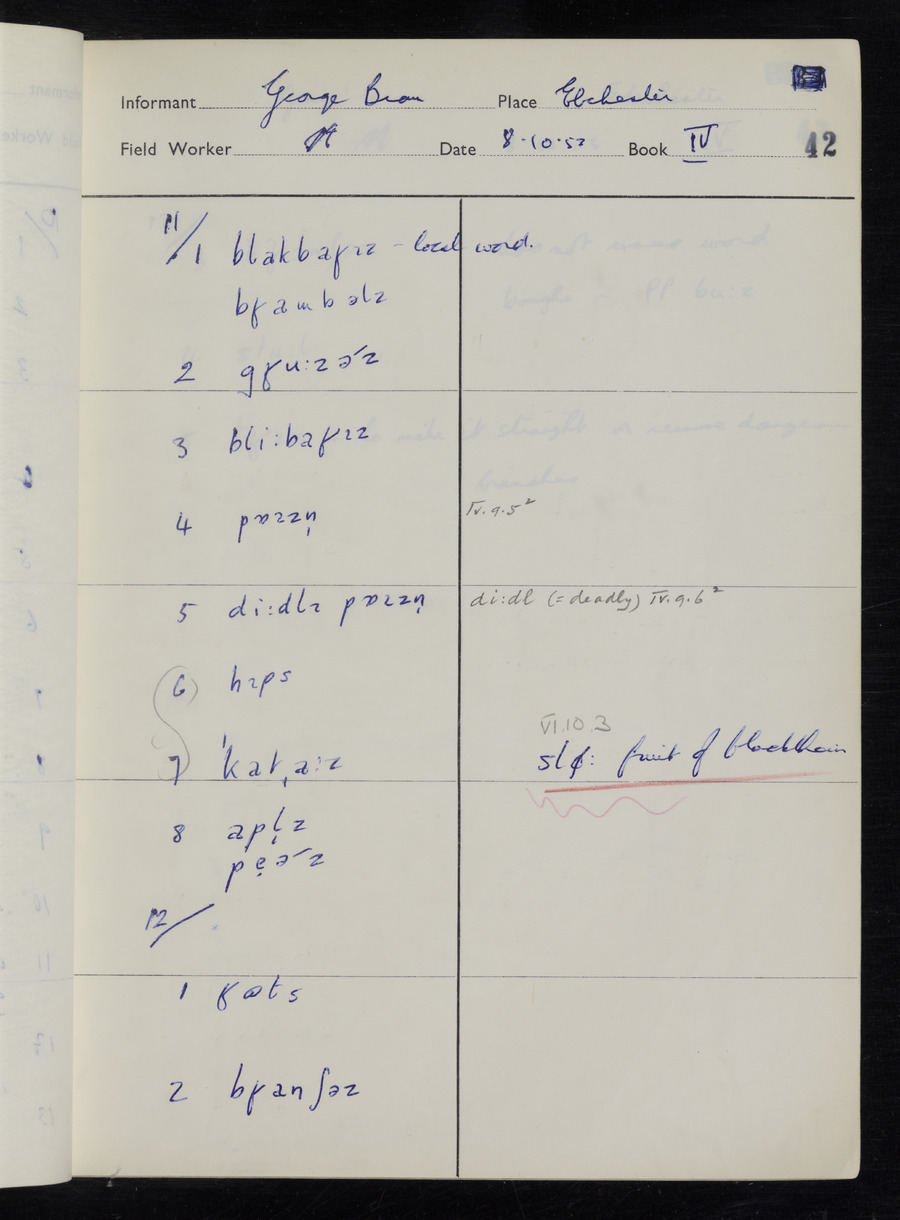 Informant George Bean Place Ebchester
Field Worker Date 8.10.52 Book IV 42
11/1 blakbaɼɪz – local word.
bɼambəlz
2 gɼu:zə˞z
3 bli:baɼɪz
4 pɒɪzn̩ IV.9.5²
5 di:dlɪ pɒɪzn̩ di:dl (= deadly) IV.9.6²
6 hɪps
VI.10.3
7 ˈkatˌa:z slø: fruit of blackthorn
8 apl̩z
pẹə˞z
12/
1 ɼɷts
2 bɼanʃəz